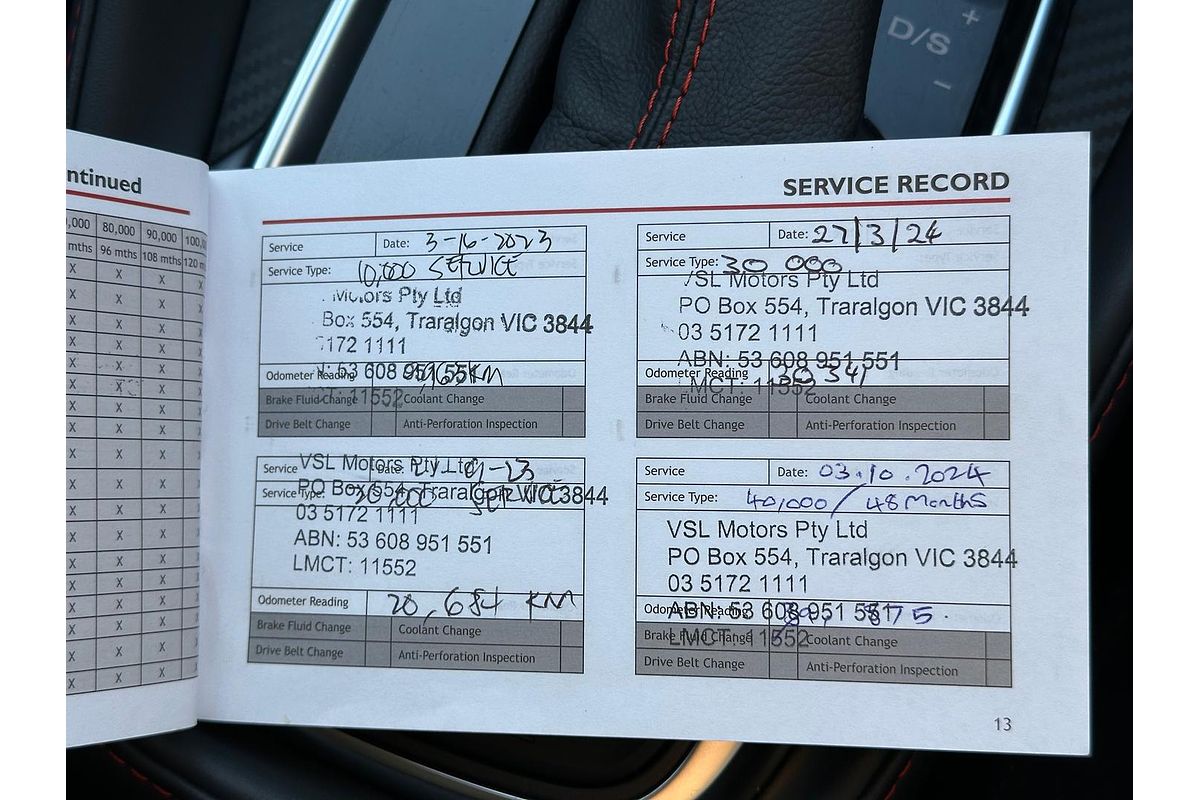 D/S
+
-
ntinued
,000 80,000 90,000 100,
mths 96 mths 108 mths 120 m
X X X
X X X
X X X
X X X
X X X
X X X
X X X
X X X
X X X
X X X
X X X
X X X
X X X
X X X
X X X
X X X
X X X
SERVICE RECORD
Service Date: 3-16-2023
Service Type: 10,000 SERVICE
Motors Pty Ltd
Box 554, Traralgon VIC 3844
5172 1111
53 608 951 551
Odometer Reading KM
11552
Brake Fluid Change Coolant Change
Drive Belt Change Anti-Perforation Inspection
Service Date: 27/3/24
Service Type: 30 000
VSL Motors Pty Ltd
PO Box 554, Traralgon VIC 3844
03 5172 1111
ABN: 53 608 951 551
Odometer Reading
LMCT: 11552
Brake Fluid Change Coolant Change
Drive Belt Change Anti-Perforation Inspection
Service Date:
VSL Motors Pty Ltd
Service Type: 20,000
PO Box 554, Traralgon VIC 3844
03 5172 1111
ABN: 53 608 951 551
LMCT: 11552
Odometer Reading 20,684 KM
Brake Fluid Change Coolant Change
Drive Belt Change Anti-Perforation Inspection
Service Date: 03.10.2024
Service Type: 40,000/48 Months
VSL Motors Pty Ltd
PO Box 554, Traralgon VIC 3844
03 5172 1111
ABN: 53 608 951 551
Odometer Reading
LMCT: 11552
Brake Fluid Change Coolant Change
Drive Belt Change Anti-Perforation Inspection
13